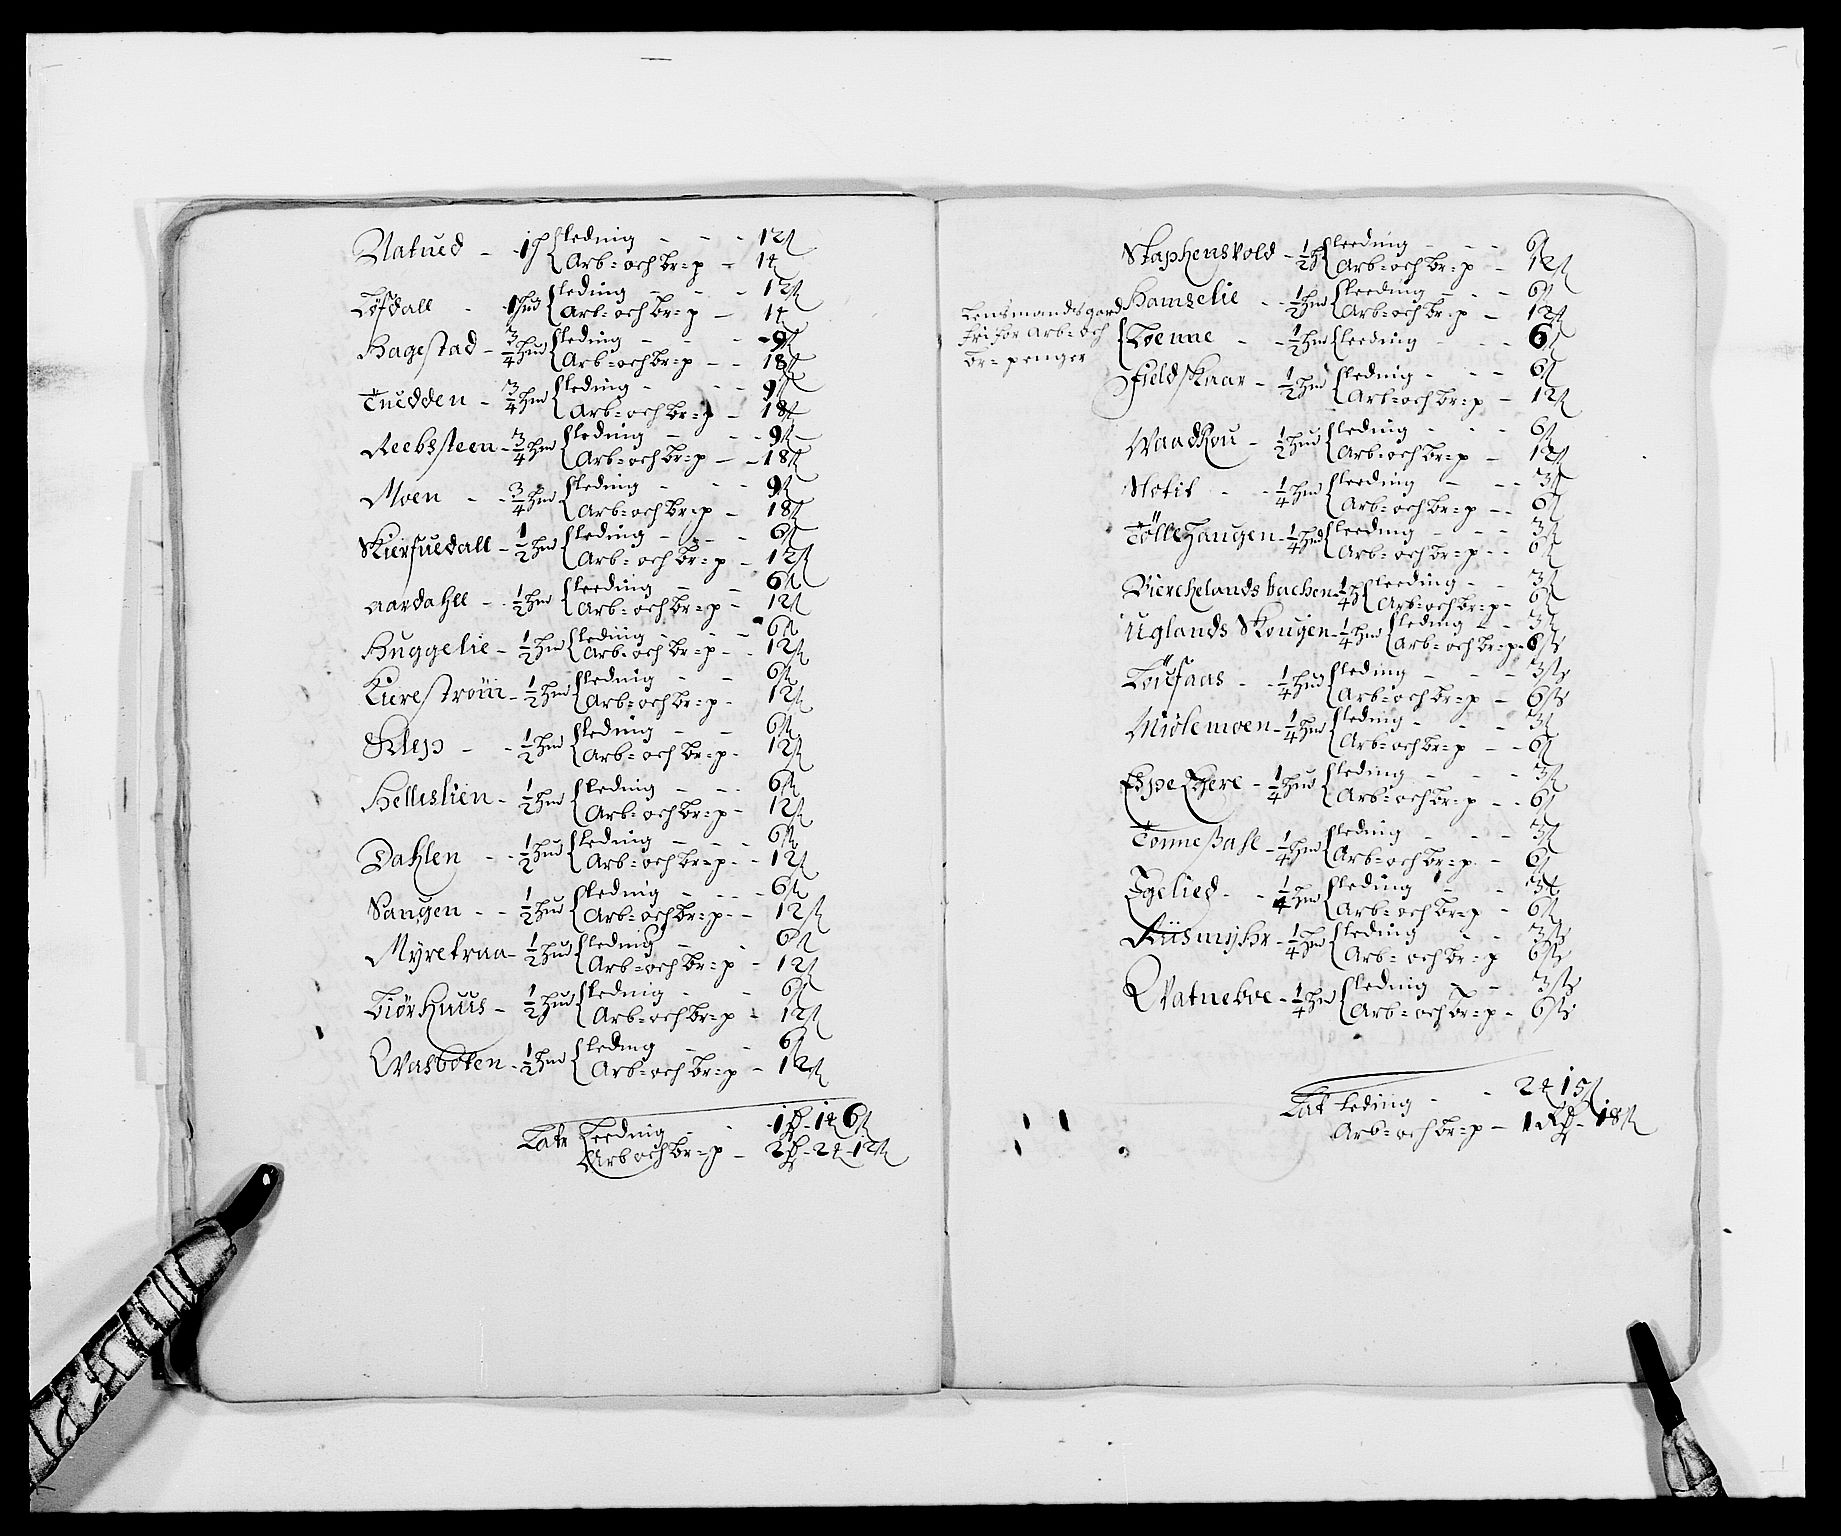 Natued - 1 { leding - - - 12 ß
Arb= och br=p - 1 t
Tøfdall - 1 hud { leding - - - 12 ß
Arb= och br=p - 1 t
Hagestad - 3/4 hud { leding - - - 9 ß
Arb= och br=p - - 18 ß
Tuedden - 3/4 hud { leding - - - 9 ß
Arb= och br=p - 18 ß
Reebsteen - 3/4 hud { leding - - - 9 ß
Arb= och br=p - - 18 ß
Moen - - 3/4 hud { leding - - - 9 ß
Arb= och br=p - 18 ß
Skierfuedall - 1/2 hud { leding - - - 6 ß
Arb= och br=p - 12 ß
Aardahll - 1/2 hud { leeding - - 6 ß
Arb= och br=p - 12 ß
Huggelie - 1/2 hud { leding - - - 6 ß
Arb= och br=p - - 12 ß
Kierestrøm - 1/2 hud { leding - - 6 ß
Arb= och br=p - 12 ß
Klep - - 1/2 hud { leding - - 6 ß
Arb= och br=p - 12 ß
Hellislien - 1/2 hud { leding - - - 6 ß
Arb= och br=p - 12 ß
Dahlen - - 1/2 hud { leding - - - 6 ß
Arb= och br=p - - 12 ß
Haugen - - 1/2 hud { leding - - - 6 ß
Arb= och br=p - - 12 ß
Myrekraa - 1/2 hud { leding - - 6 ß
Arb= och br=p - 12 ß
Tiørhuus - 1/2 hud { leding - - 6 ß
Arb= och br=p - 12 ß
Wasboten - 1/2 hud { leding - - 6 ß
Arb= och br=p - 12 ß
Latr Leeding - - 1 - 1 t 6 ß
Arb och br=p - 2 - 2 t - 12 ß
Staphensvold - 1/2 h { leeding - - - 6 ß
Arb= och br=p - 12 ß
Hamselie - - 1/2 hud { leeding - - - 6 ß
Arb= och br=p - 12 ß
Lensmandsgard
fri for Arb= och
br=penger
{ Toenne - - 1/2 hud { leeding - - - 6 ß
Fieldskaar - 1/2 hud { leding - - - 6 ß
Arb= och br=p - 12 ß
Waadkou - 1/2 hud { leding - - - 6 ß
Arb= och br=p - 12 ß
Slotit - - 1/4 hud { leeding - - - 3 ß
Arb= och br=p - - 6 ß
Tøllehaugen - 1/4 hud { leeding - - - 3 ß
Arb= och br=p - - 6 ß
Bierchelandsbachen - 1/4 h { leeding - - 3 ß
Arb= och br=p - 6 ß
Uglands Skougen - 1/4 hud { leding - - 3 ß
Arb= och br=p - 6 ß
Tøifaas - - 1/4 hud { leding - - - 3 ß
Arb= och br=p - 6 ß
Miølemoen - 1/4 hud { leding - - - 3 ß
Arb= och br=p - - 6 ß
Espekhere - 1/4 hud { leding - - - 3 ß
Arb= och br=p - - 6 ß
Tonnesahl - 1/4 hud { leding - - - 3 ß
Arb= och br=p - - 6 ß
Egelied - - 1/4 hud { leding - - 3 ß
Arb= och br=p - 6 ß
Riismyhr - 1/4 hud { leding - - 3 ß
Arb= och br=p 6 ß
Watneboe - 1/4 hud { leding - - 3 ß
Arb= och br=p - 6 ß
Lat leding - - 2 t 15 ß
Arb= och br=p - 1 - 18 ß